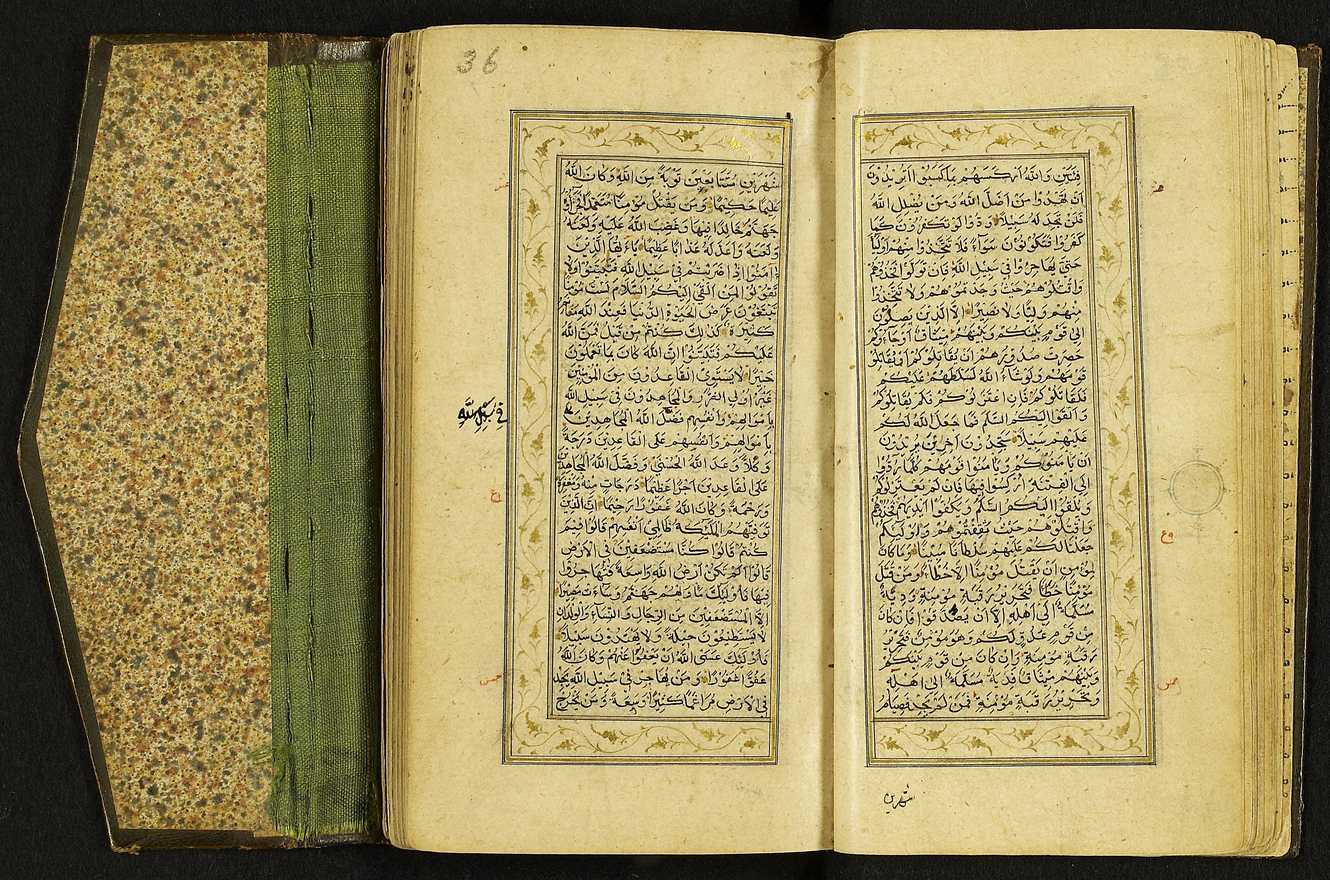 فئتين والله اركسهم بما كسبوا اتريدون
ان تهدوا من اضل الله ومن يضلل الله
فلن تجد له سبيلا ودوا لو تكفرون كما
كفروا فتكونون سوآء فلا تتخذوا منهم اوليآ
حتى يهاجروا في سبيل الله فان تولوا فخذوهم
واقتلوهم حيث وجدتموهم ولا تتخذوا
منهم وليا ولا نصيرا الا الذين يصلون
الى قوم بينكم وبينهم ميثاق اوجاءوكم
حصرت صدورهم ان يقاتلوكم او يقاتلوا
قومهم ولو شاء الله لسلطهم عليكم
فلقاتلوكم فان اعتزلوكم فلم يقاتلوكم
والقوا اليكم السلم فما جعل الله لكم
عليهم سبيلا ستجدون آخرين يريدون
ان يامنوكم ويامنوا قومهم كلما ردوا
الى الفتنة اركسوا فيها فان لم يعتزلوكم
ويلقوا اليكم السلم ويكفوا ايديهم فخذوهم
واقتلوهم حيث ثقفتموهم واوليكم
جعلنا لكم عليهم سلطانا مبينا وما كان
لمؤمن ان يقتل مؤمنا الا خطأ ومن قتل
مؤمنا خطأ فتحرير رقبة مؤمنة ودية
مسلمة الى اهله الا ان يصدقوا فان كان
من قوم عدو لكم وهو مؤمن فتحرير
رقبة مؤمنة وان كان من قوم بينكم
وبينهم ميثاق فدية مسلمة الى اهله
وتحرير رقبة مؤمنة فمن لم يجد فصيام
شهرين
36
شهرين متتابعين توبة من الله وكان الله
عليما حكيما ومن يقتل مؤمنا متعمدا فجزآؤه
جهنم خالدا فيها وغضب الله عليه ولعنه
ولعنه واعد له عذابا عظيما يا ايها الذين
امنوا اذا ضربتم في سبيل الله فتبينوا ولا
تقولوا لمن القى اليكم السلام لست مؤمنا
تبتغون عرض الحيوة الدنيا فعند الله مغانم
كثيرة كذلك كنتم من قبل فمن الله
عليكم فتبينوا ان الله كان بما تعملون
خبيرا لا يستوى القاعدون من المؤمنين
غير اولى الضرر والمجاهدون في سبيل الله
باموالهم وانفسهم فضل الله المجاهدين
باموالهم وانفسهم على القاعدين درجة
وكلا وعد الله الحسنى وفضل الله المجاهدين
على القاعدين اجرا عظيما درجات منه ومغفرة
ورحمة وكان الله غفورا رحيما ان الذين
توفيهم المليكة ظالمى انفسهم قالوا فيم
كنتم قالوا كنا مستضعفين في الارض
قالوا الم تكن ارض الله واسعة فتهاجروا
فيها فاوليك ماويهم جهنم وساءت مصيرا
الا المستضعفين من الرجال والنساء والولدان
لا يستطيعون حيلة ولا يهتدون سبيلا
فاوليك عسى الله ان يعفو عنهم وكان الله
عفوا غفورا ومن يهاجر في سبيل الله يجد
في الارض مراغما كثيرا وسعة ومن يخرج
في سبيل الله